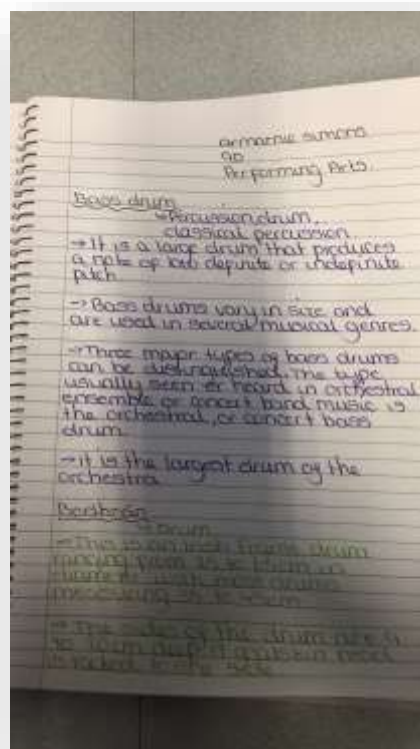 armarnie simons
9D
Performing Arts.
Bass drum
→Percussion drum,
classical percussion
→It is a large drum that produces
a note of low definite or indefinite
pitch
→Bass drums vary in size and
are used in several musical genres.
→Three major types of bass drums
can be distinguished. The type
usually seen or heard in orchestral
ensemble or concert band music is
the orchestral, or concert bass
drum.
→it is the largest drum of the
orchestra
Bodhrán
→Drum
→This is an Irish frame drum
ranging from 25 to 65cm in
diameter with most drums
measuring 35 to 45cm
→The sides of the drum are 9
to 20cm deep. A goatskin head
is tacked to one side